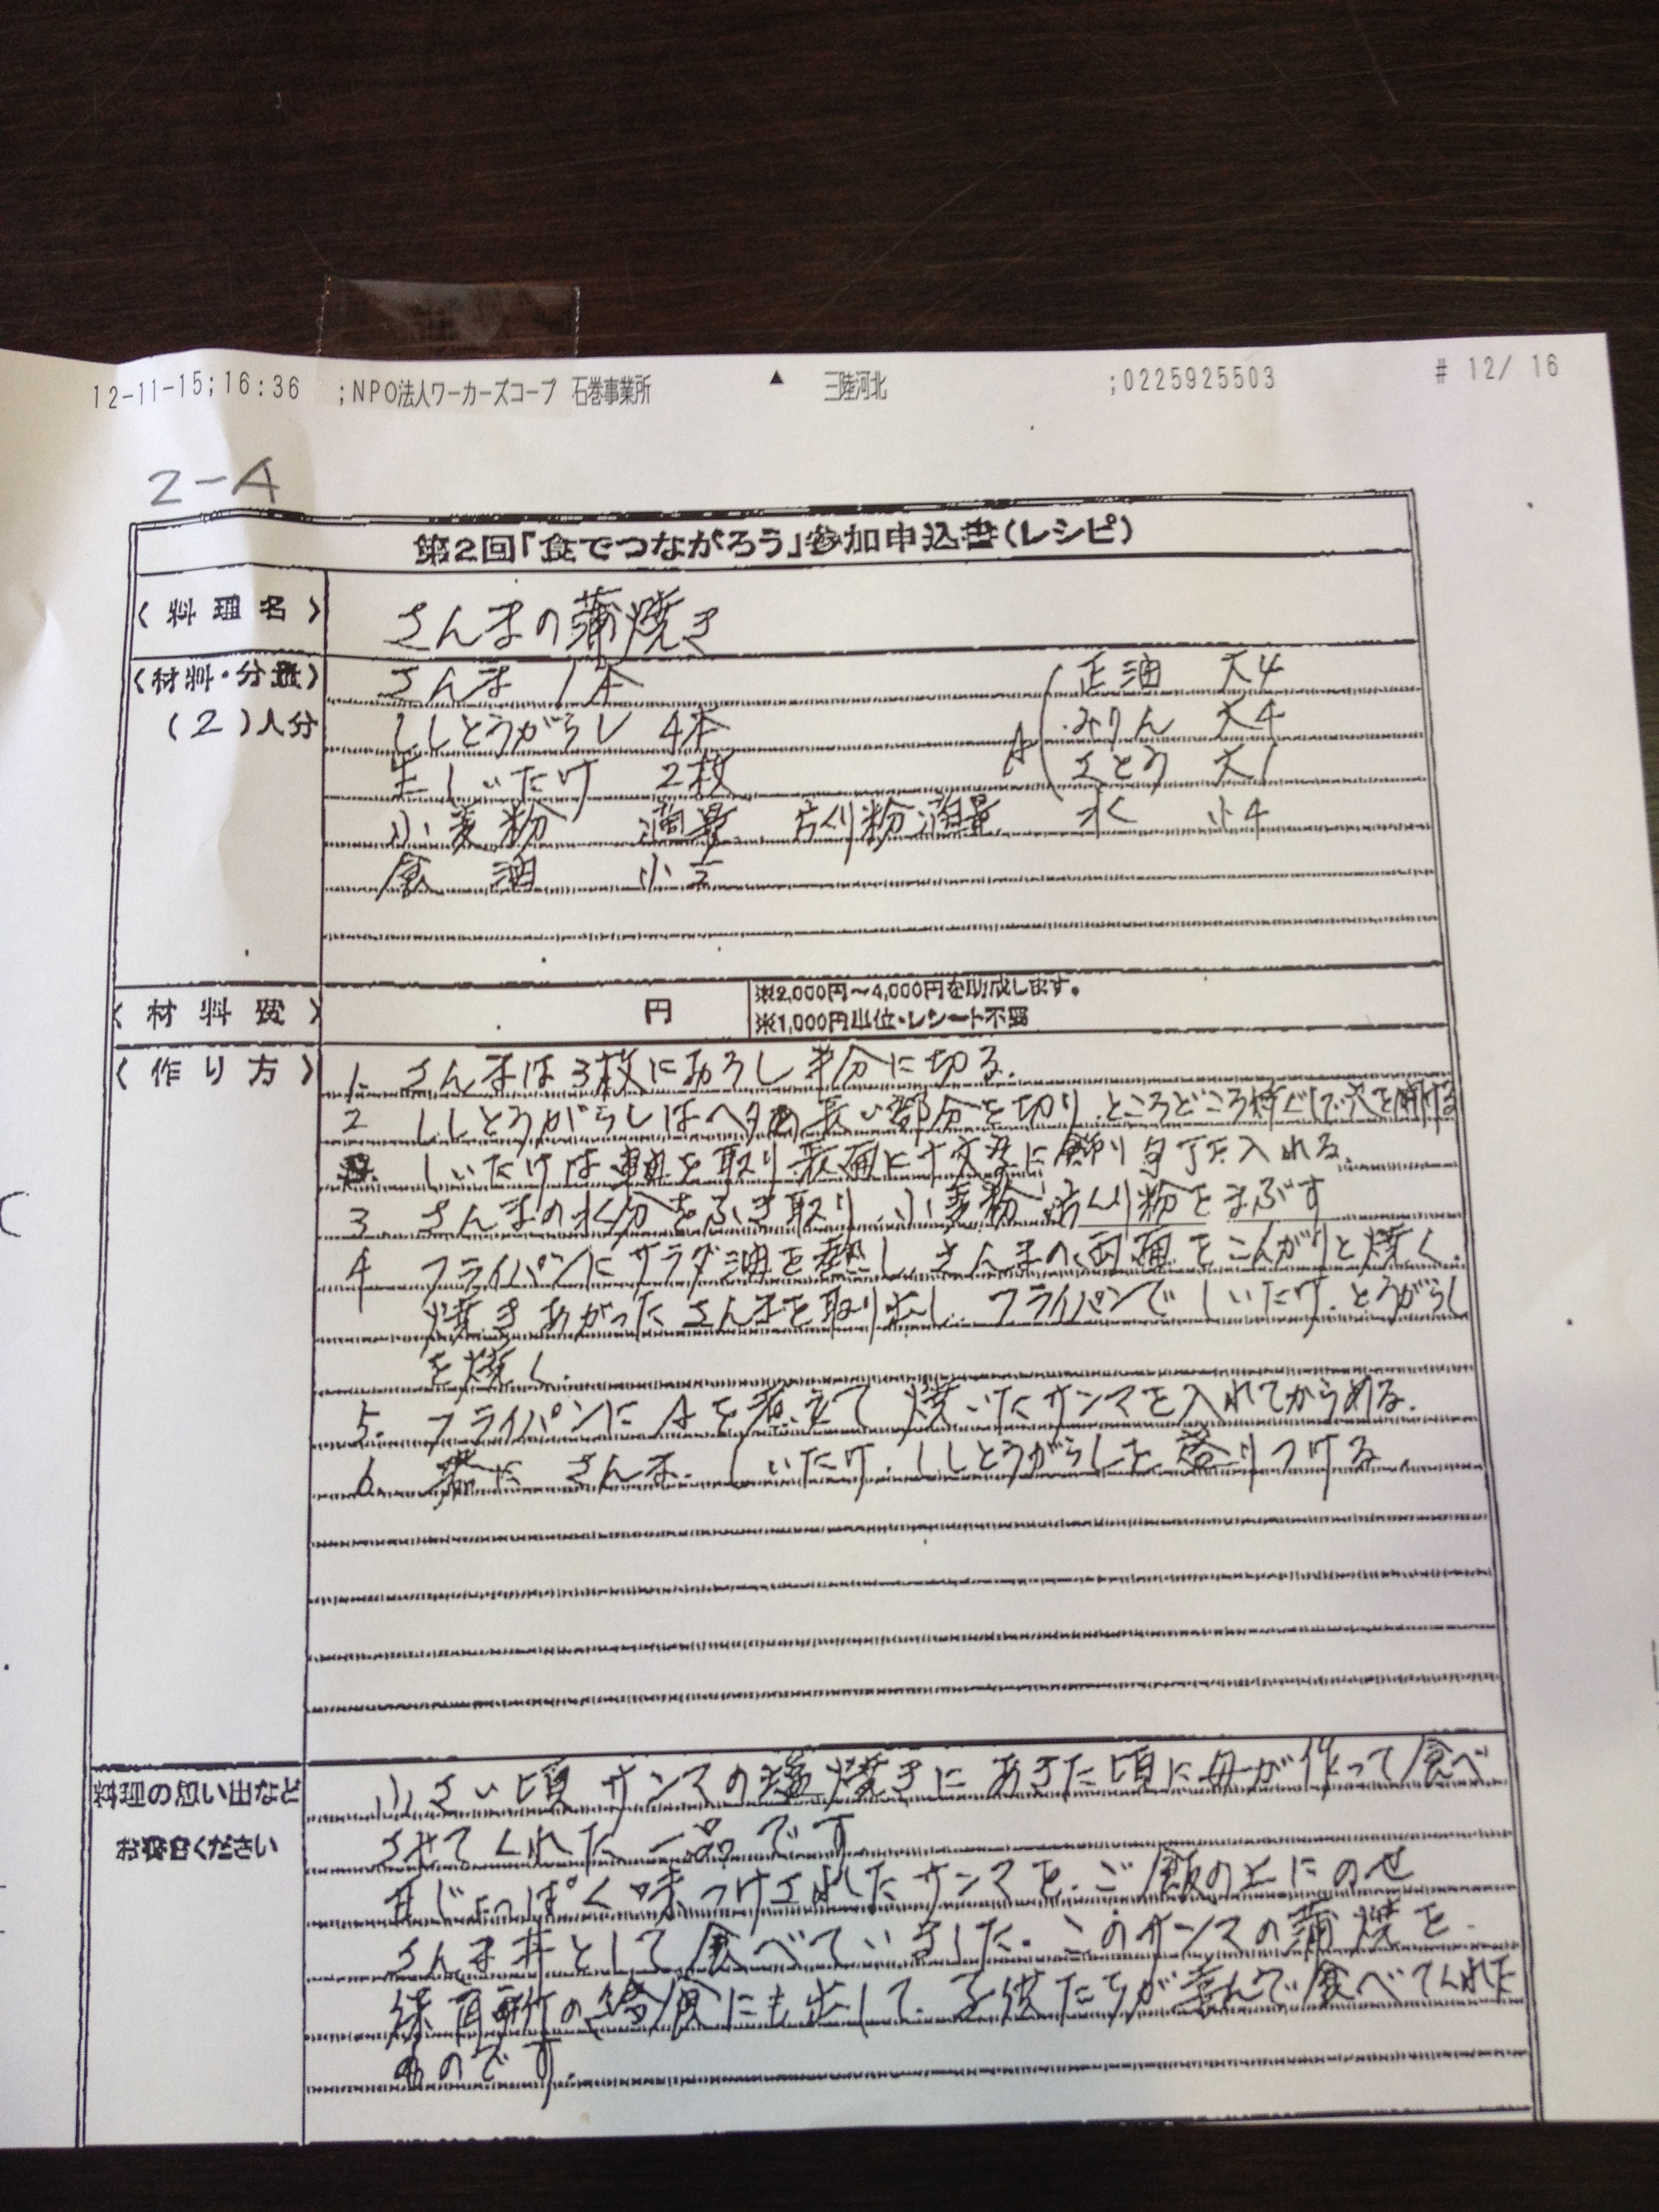 12-11-15;16:36 ;NPO法人ワーカーズコープ 石巻事業所 ▲ 三陸河北 ;0225925503 # 12/ 16
2-A
第2回「食でつながろう」参加申込書(レシピ)
〈料理名〉 さんまの蒲焼き
〈材料・分量〉 さんま 1本 正油 大4
(2)人分 ししとうがらし 4本 A みりん 大4
生しいたけ 2枚 さとう 大1
小麦粉 適量 片くり粉 適量 水 小4
食油 小
〈材料費〉 円 ※2,000円~4,000円を助成します。
※1,000円単位・レシート不要
〈作り方〉 1. さんまは3枚におろし半分に切る.
2 ししとうがらしはヘタの長い部分を切り.ところどころ竹ぐしで穴を開ける
しいたけは軸を取り表面に十文字に飾り包丁を入れる.
3 さんまの水分をふき取り.小麦粉.片くり粉をまぶす
4 フライパンにサラダ油を熱し.さんまの両面をこんがりと焼く.
焼きあがったさんまを取り出し.フライパンで しいたけ.とうがらし
を焼く.
5. フライパンにAを煮立て 焼いたサンマを入れてからめる.
6. さんま.しいたけ.ししとうがらしを.盛りつける.
料理の思い出など 小さい頃 サンマの塩焼きに あきた頃に母が作って食べ
お書きください させてくれた一品です
甘じょっぱく味つけされたサンマを.ご飯の上にのせ
さんま丼として食べていました.このサンマの蒲焼を.
保育所の給食にも出して.子供たちが喜んで食べてくれた
ものです.